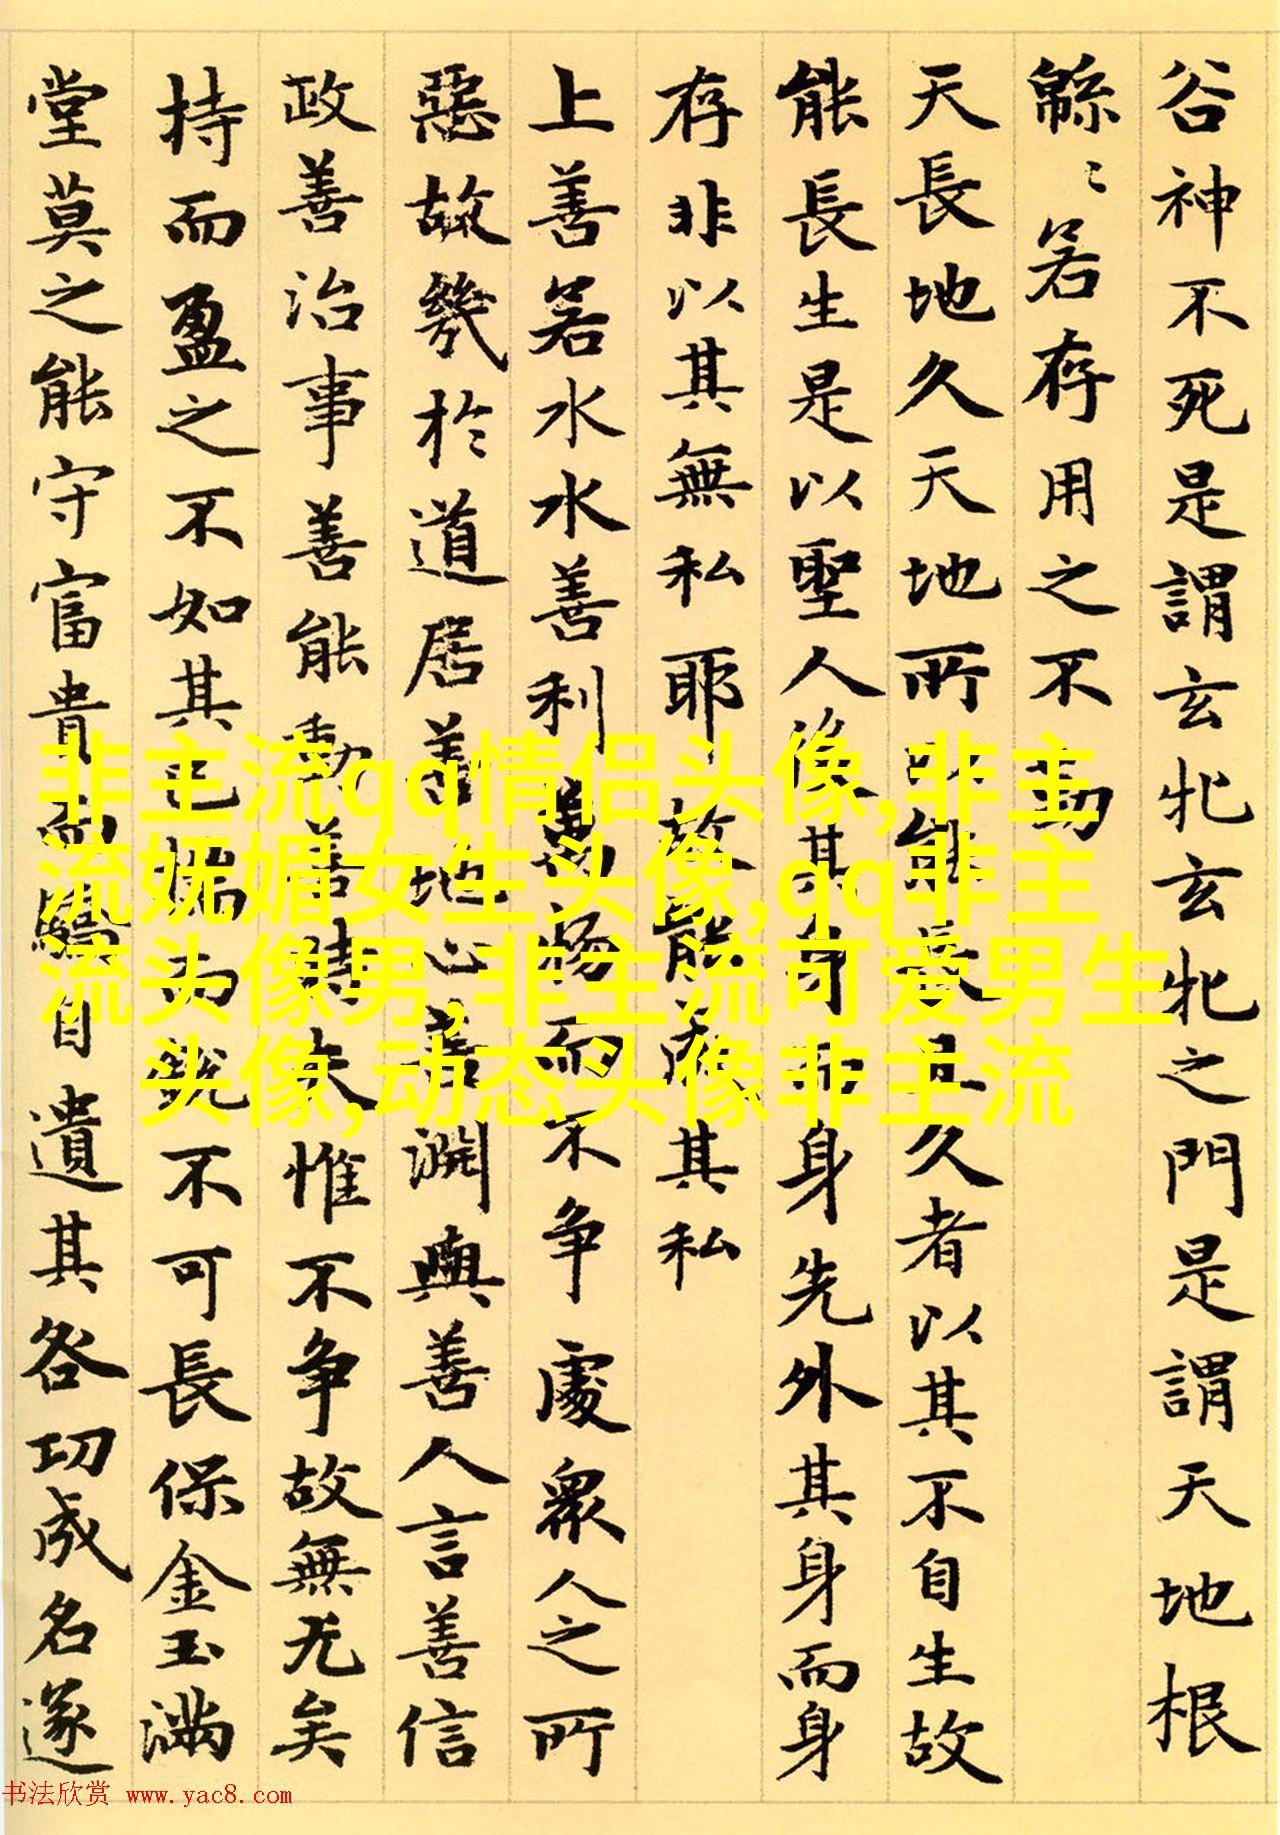 谷神不死是謂玄牝玄牝之門是謂天地根
緜〻若存用之不勤
天長地久天地所以能長且久者以其不自生故
能長生是以聖人後其身而身先外其身而身
存非以其無私耶故能成其私
上善若水水善利萬物而不争處衆人之所
惡故幾於道居善地心善淵與善人言善信
政善治事善能動善時夫惟不争故無尤矣
持而盈之不如其已揣而銳不可長保金玉滿
堂莫之能守富貴而驕自遺其咎功成名遂
非主流qq情侣头像,非主
流妩媚女生头像,qq非主
流头像男,非主流可爱男生
头像,动态头像非主流
书法欣赏 www.yac8.com